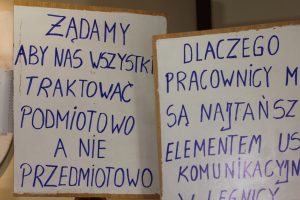 ŻĄDAMY
ABY NAS WSZYSTKI
TRAKTOWAĆ
PODMIOTOWO
A NIE
PRZEDMIOTOWO
DLACZEGO
PRACOWNICY M
SĄ NAJTAŃSZ
ELEMENTEM US
KOMUNIKACYJN
W LEGNICY